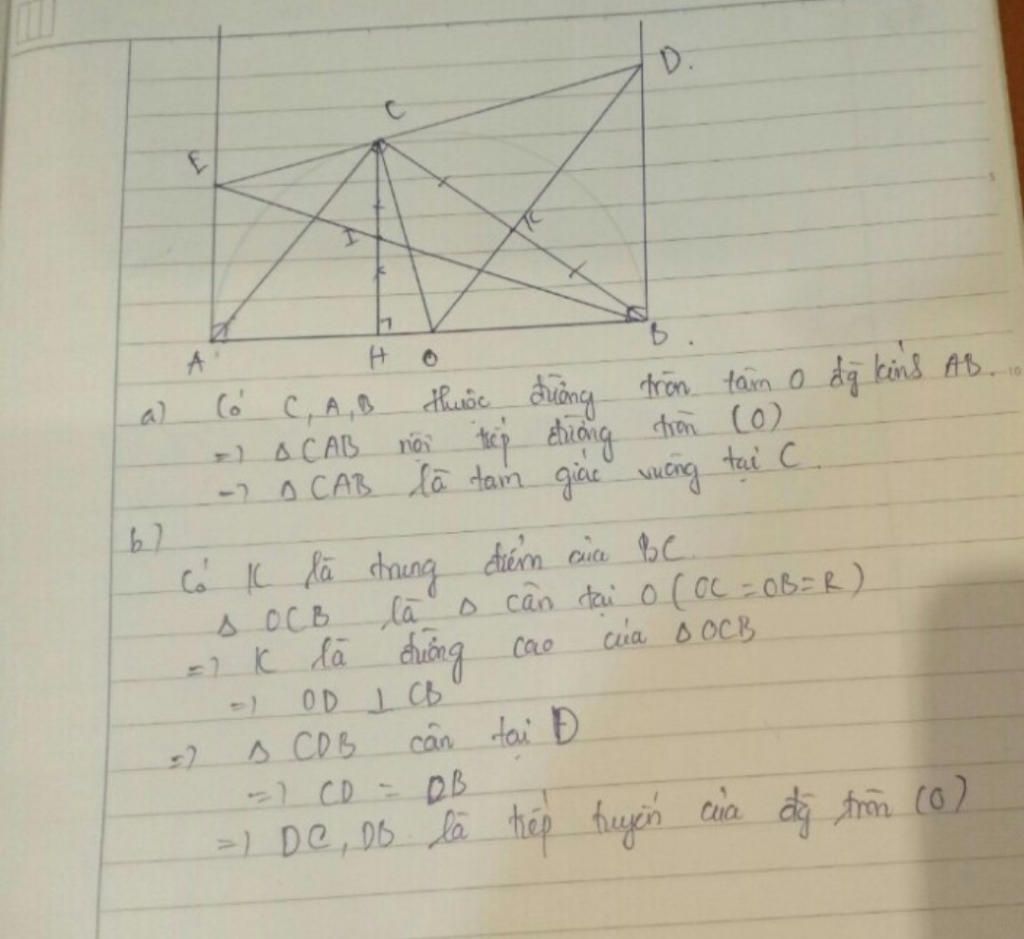 D.
C
E
K
I
A H O B.
a) Có C, A, B thuộc đường tròn tâm O đg kính AB.
=> Δ CAB nội tiếp đường tròn (O)
=> Δ CAB là tam giác vuông tại C.
b)
Có K là trung điểm của BC.
Δ OCB là Δ cân tại O (OC = OB = R)
=> K là đường cao của Δ OCB
=> OD ⊥ CB
=> Δ CDB cân tại D
=> CD = DB
=> DC, DB là tiếp tuyến của đg tròn (O)